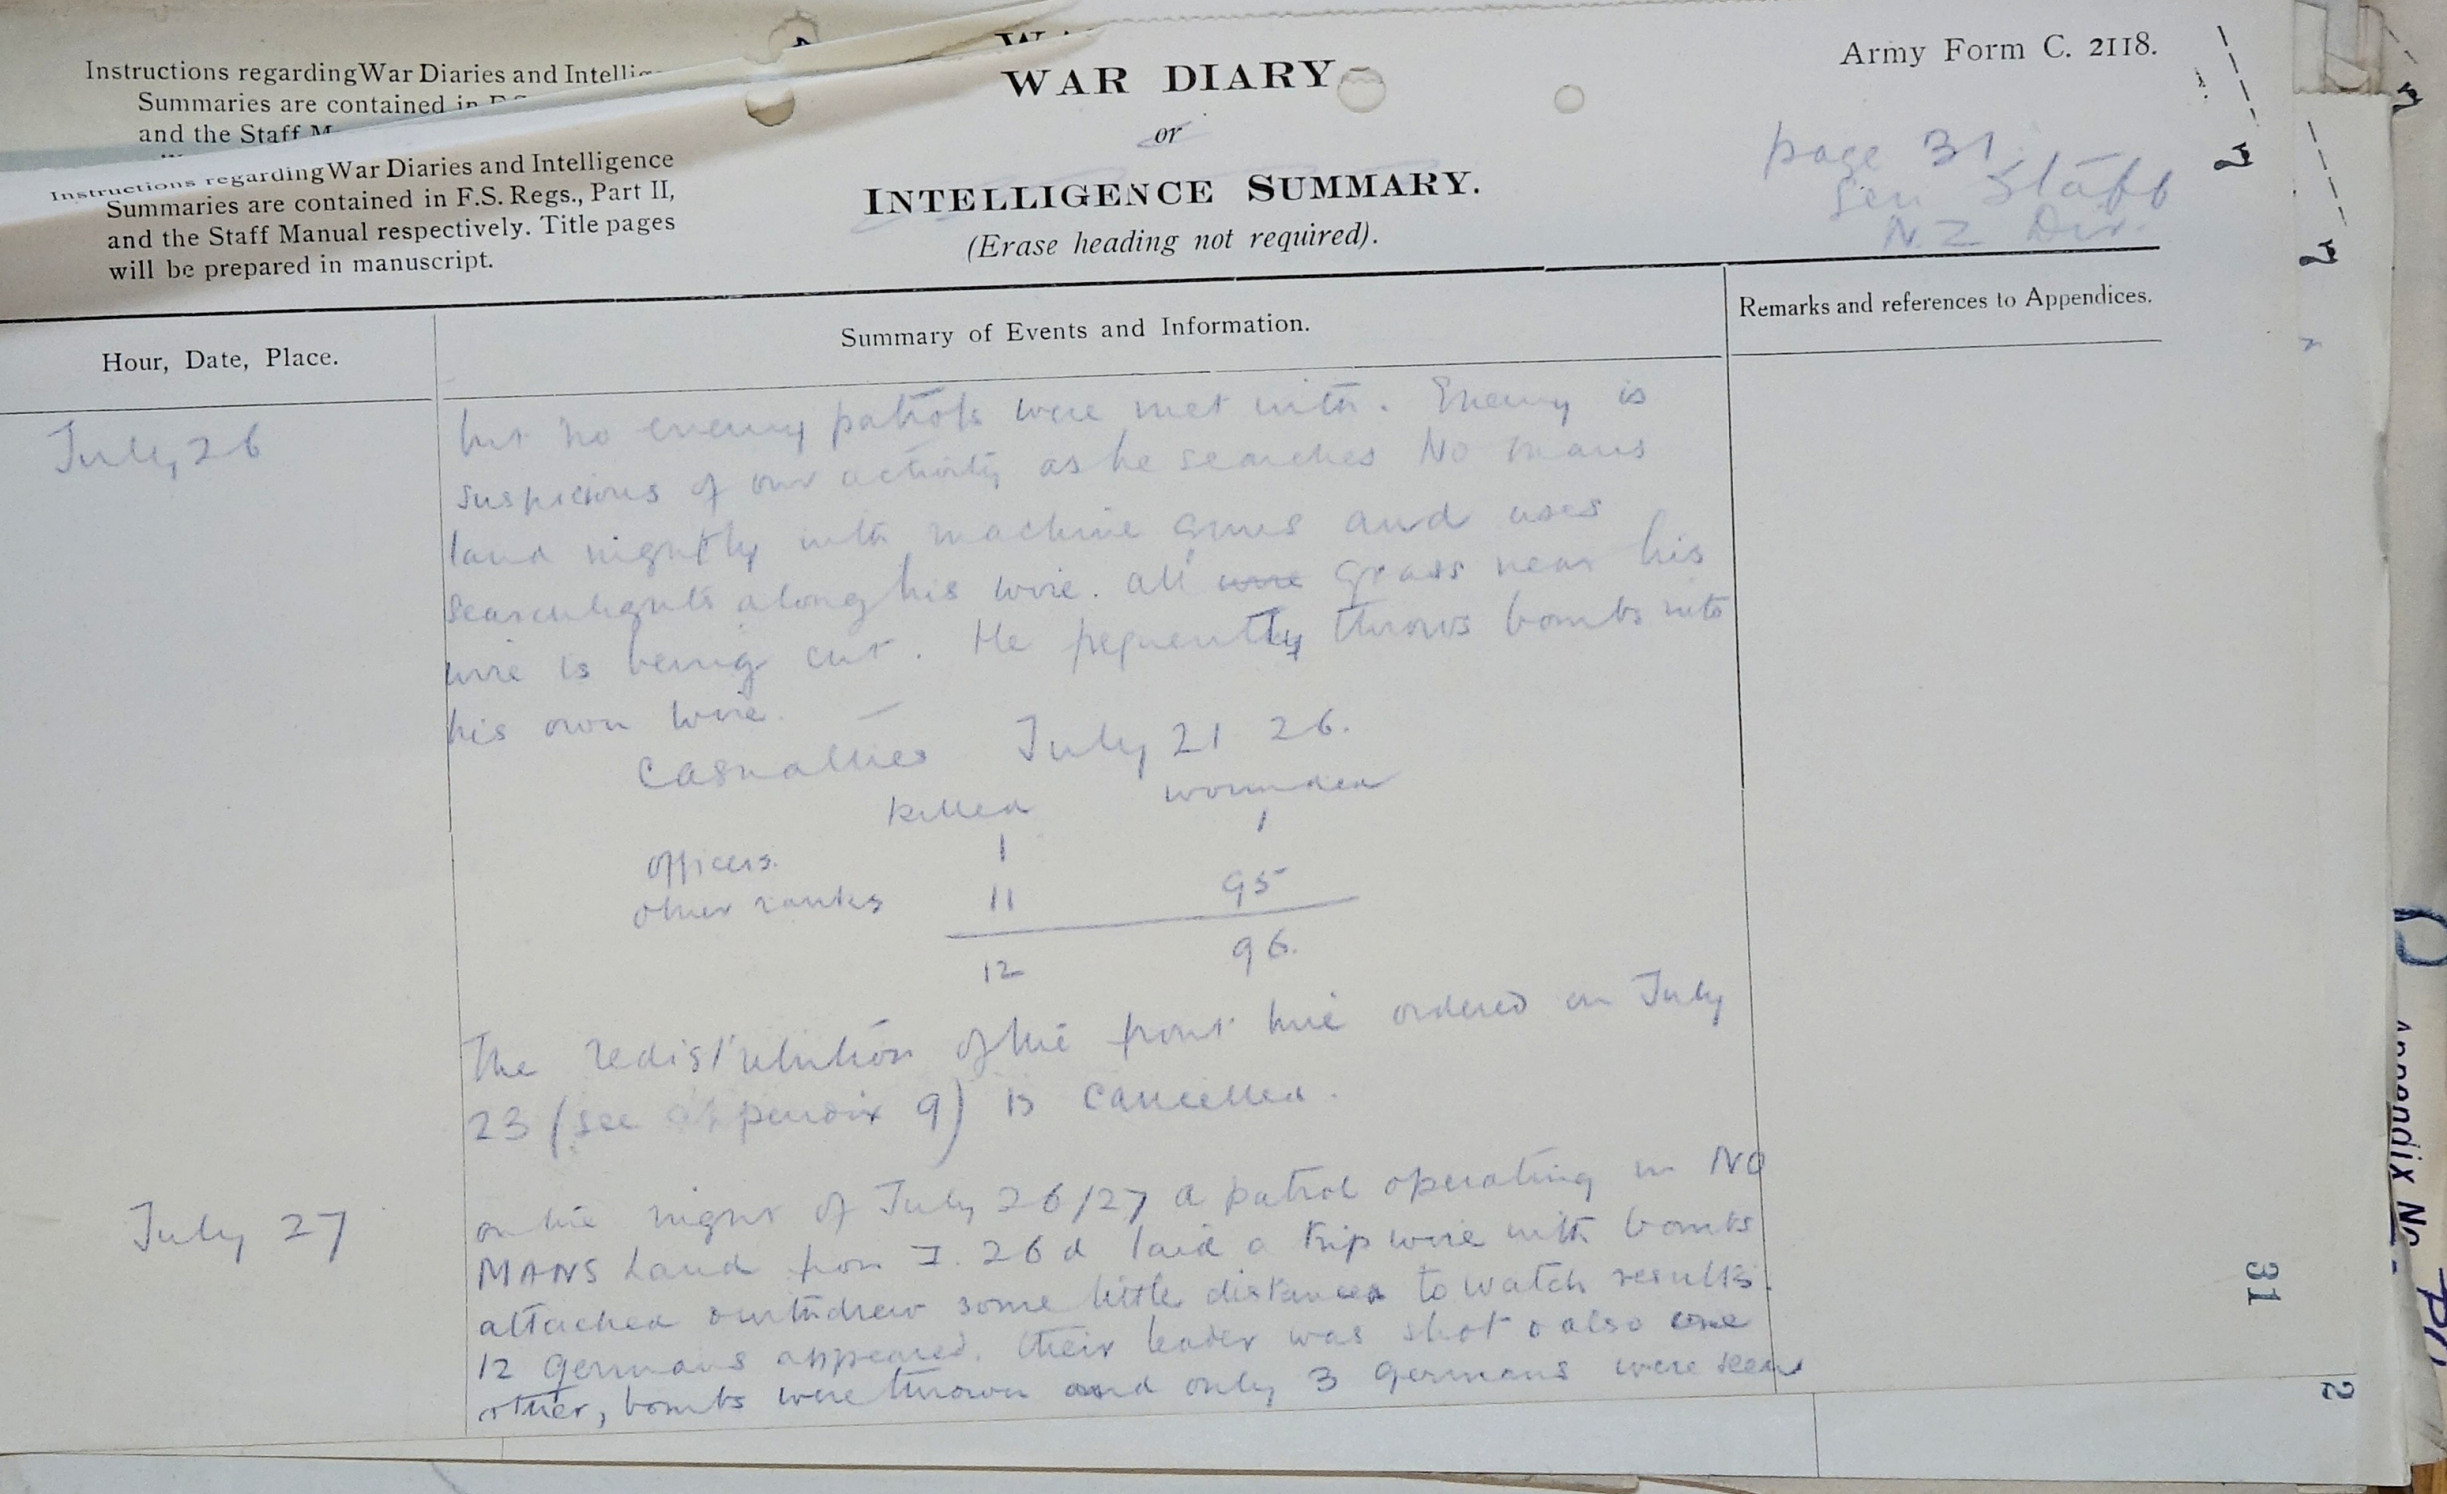 Instructions regarding War Diaries and Intellig
Summaries are contained in F.S.
and the Staff M
Instructions regarding War Diaries and Intelligence
Summaries are contained in F.S. Regs., Part II,
and the Staff Manual respectively. Title pages
will be prepared in manuscript.
WAR DIARY
or
INTELLIGENCE SUMMARY.
(Erase heading not required).
Army Form C. 2118.
page 31
Gen Staff
N.Z Div.
Hour, Date, Place.
Summary of Events and Information.
Remarks and references to Appendices.
July 26
but no enemy patrols were met with. Enemy is
suspicious of our activity as he searches No mans
land nightly with machine guns and uses
searchlights along his wire. all wire grass near his
wire is being cut. He frequently throws bombs into
his own wire. —
Casualties July 21 26.
killed wounded
officers. 1 1
other ranks 11 95
12 96.
The redistribution of the front line ordered on July
23 (see appendix 9) is cancelled.
July 27
on the night of July 26/27 a patrol operating in NO
MANS Land from I. 26 d laid a trip wire with bombs
attached & withdrew some little distance to watch results.
12 germans appeared. their leader was shot & also one
other, bombs were thrown and only 3 germans were seen
31
2
Appendix No